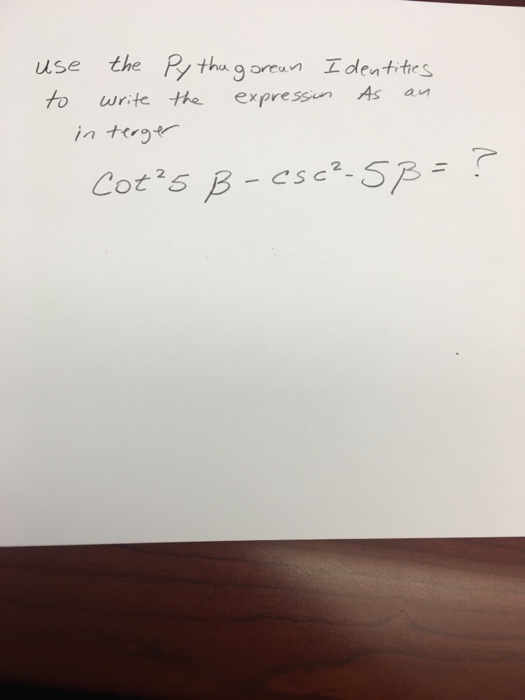 use the Pythagorean Identities
to write the expression As an
interger
Cot²5 β - csc²-5β = ?